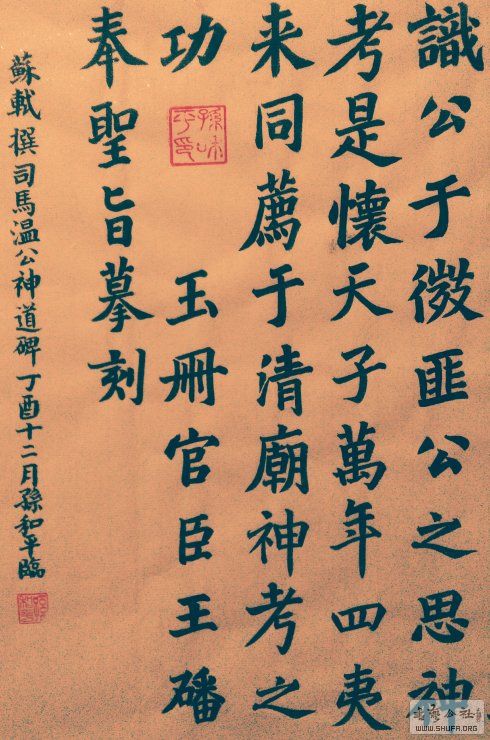 識公于微匪公之思神
考是懷天子萬年四夷
来同薦于清廟神考之
功 玉冊官臣王磻
奉聖旨摹刻
蘇軾撰司馬温公神道碑丁酉十二月孫和平臨
孫咊平印
WWW.SHUFA.ORG